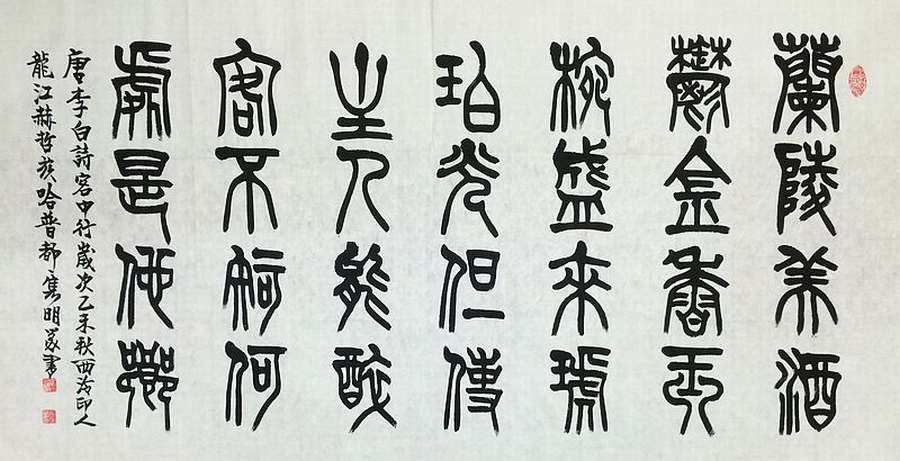 蘭陵美酒
鬱金香玉
椀盛來琥
珀光但使
主人能醉
客不知何
處是他鄉
唐李白詩客中行歲次乙未秋西泠印人
龍江赫哲族哈普都隽明篆書